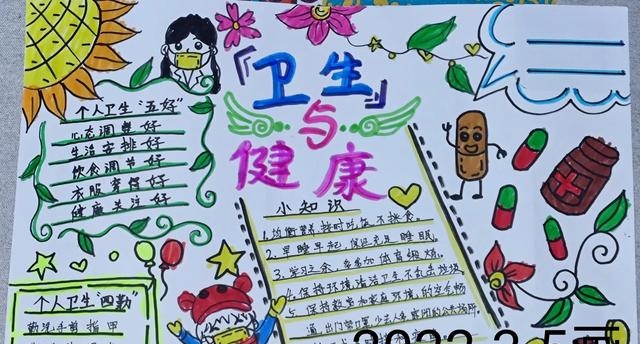 『卫生』
与
健康
个人卫生"五好"
心态调整好
生活安排好
饮食调节好
衣服穿得好
健康关注好
个人卫生"四勤"
勤洗手剪指甲
小知识
1.均衡营养按时吃饭不挑食。
2.早睡早起,保证充足睡眠。
3.学习之余,多参加体育锻炼。
4.保持环境清洁卫生不乱丢垃圾
5.保持教室和家庭环境的空气畅
通,出门戴口罩少去人多密闭的公共场所。
2022.2.5画